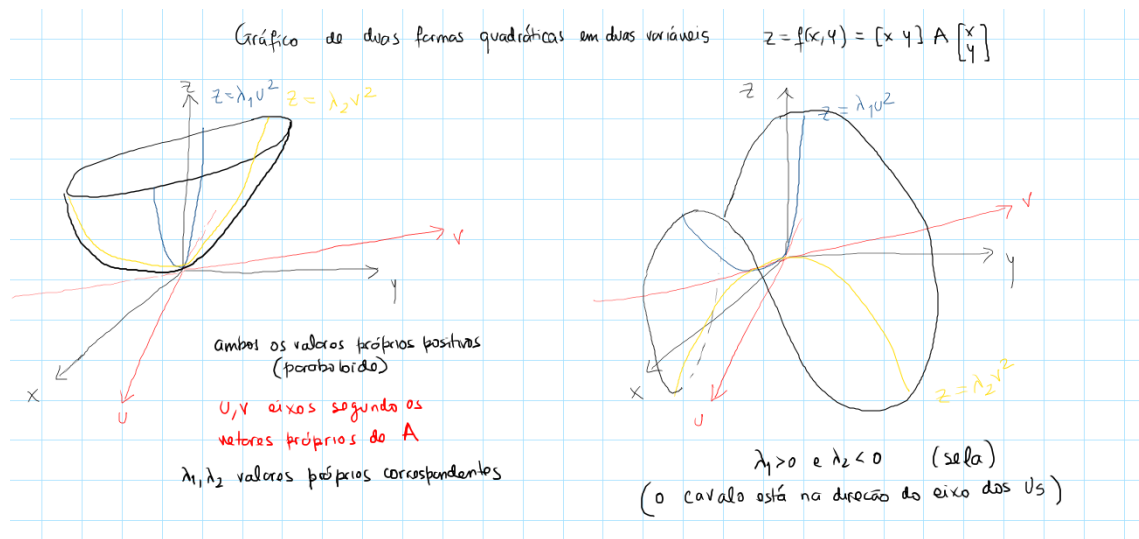 Gráfico de duas formas quadráticas em duas variáveis z = f(x,y) = [x y] A [x y]
z
z = λ₁u²
z = λ₂v²
v
y
x
u
ambos os valores próprios positivos
(paraboloide)
u,v eixos segundo os
vetores próprios de A
λ₁, λ₂ valores próprios correspondentes
z
z = λ₁u²
v
y
x
u
z = λ₂v²
λ₁>0 e λ₂<0 (sela)
(o cavalo está na direção do eixo dos Us)